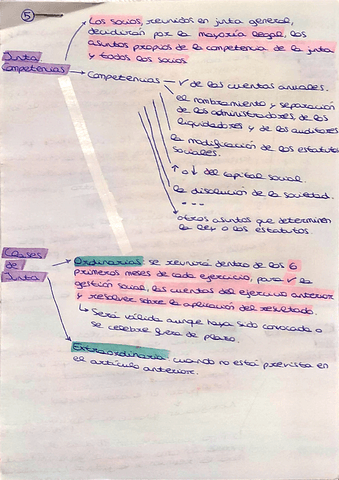 5
Los socios, reunidos en junta general,
decidirán por la mayoría legal, los
asuntos propios de la competencia de la junta
y todos los socios
Junta
Competencias
Competencias — ✓ de las cuentas anuales.
el nombramiento y separación
de los administradores, de los
liquidadores y de los auditores
la modificación de los estatutos
sociales.
↑ o ↓ del capital social.
la disolución de la sociedad.
- - -
otros asuntos que determinen
la ley o los estatutos.
Clases
de
Junta
Ordinarias se reunirá dentro de los 6
primeros meses de cada ejercicio, para ✓ la
gestión social, las cuentas del ejercicio anterior
y resolver sobre la aplicación del resultado.
↳ Será válida aunque haya sido convocada o
se celebre fuera de plazo.
Extraordinaria cuando no está prevista en
el artículo anterior.